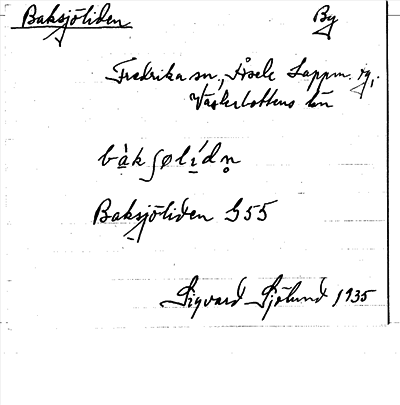 Baksjöliden By
Fredrika sn., Åsele Lappm. tg.,
Västerbottens län
bàkʃølídn̥
Baksjöliden G55
Sigvard Sjölund 1935